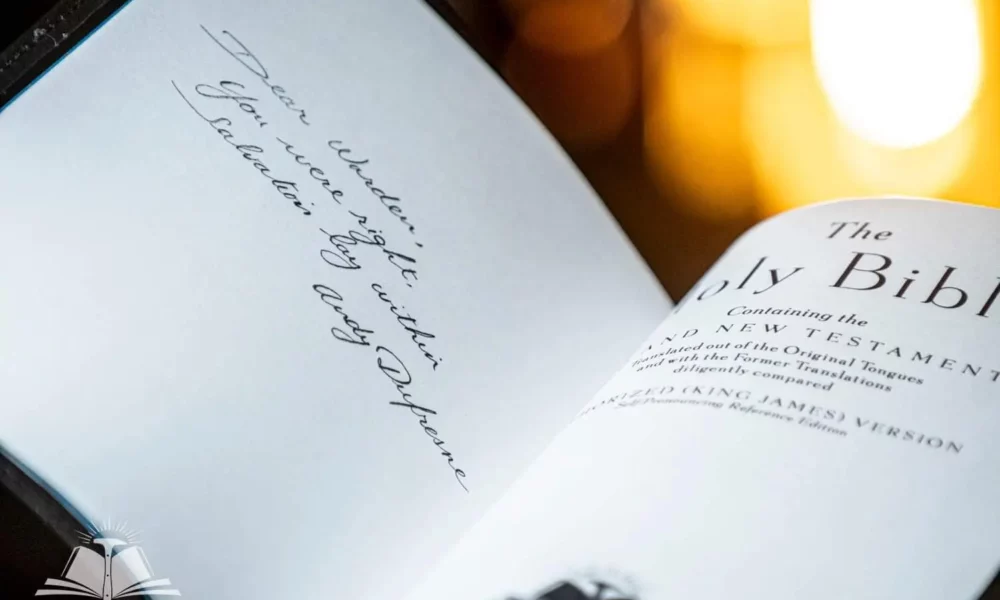 Dear Warden,
You were right.
Salvation lay within
Andy Dufresne
The
oly Bibl
Containing the
AND NEW TESTAMENT
Translated out of the Original Tongues
and with the Former Translations
diligently compared
ORIZED (KING JAMES) VERSION
Self-Pronouncing Reference Edition